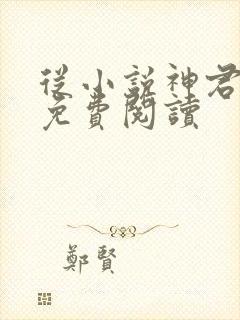 從小說神君
免費閱讀
鄭賢